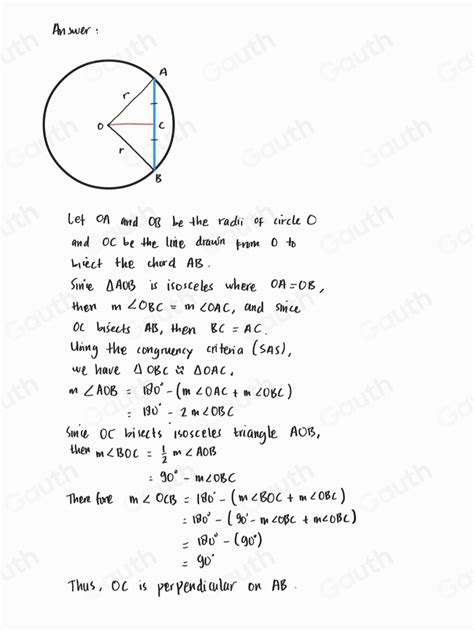 Answer :
A
r
O
C
r
B
Let OA and OB be the radii of circle O
and OC be the line drawn from O to
bisect the chord AB.
Since △AOB is isosceles where OA=OB,
then m∠OBC = m∠OAC, and since
OC bisects AB, then BC = AC.
Using the congruency criteria (SAS),
we have △OBC ≅ △OAC,
m∠AOB = 180° - (m∠OAC + m∠OBC)
= 180° - 2m∠OBC
Since OC bisects isosceles triangle AOB,
then m∠BOC = 1/2 m∠AOB
= 90° - m∠OBC
Therefore m∠OCB = 180° - (m∠BOC + m∠OBC)
= 180° - (90° - m∠OBC + m∠OBC)
= 180° - (90°)
= 90°
Thus, OC is perpendicular on AB.
Gauth